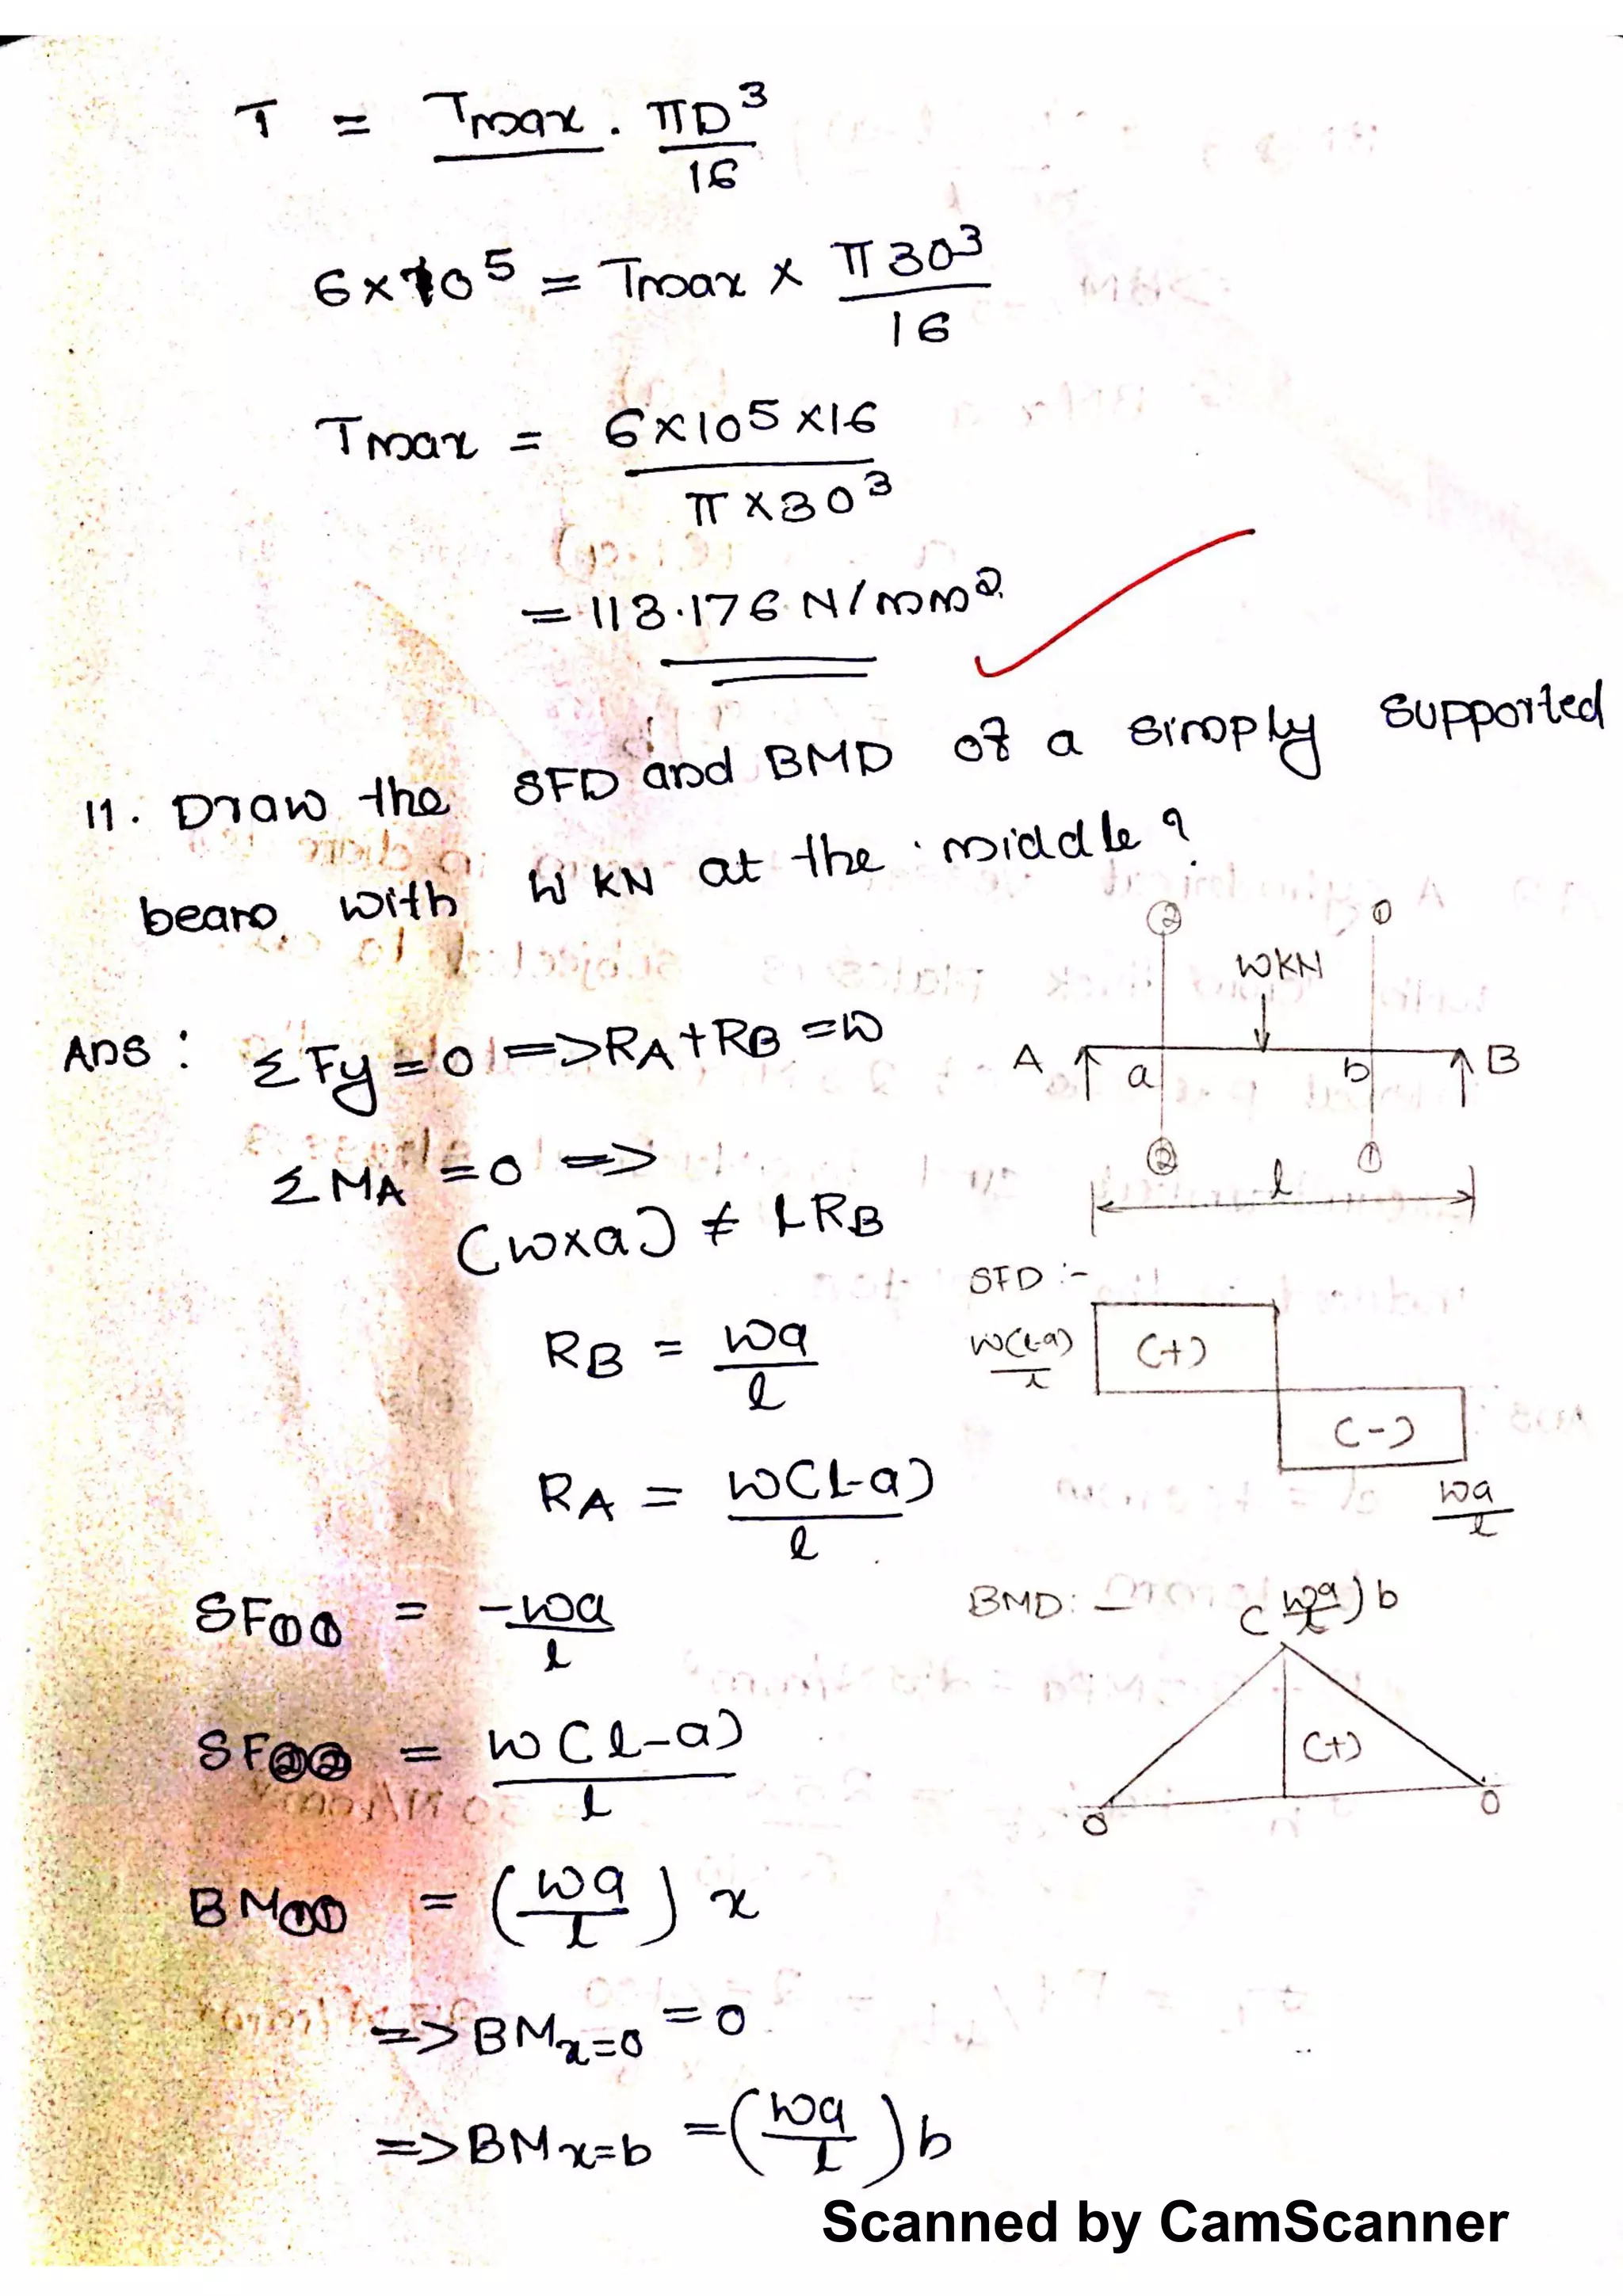 T = Tmax . πD³/16
6×10⁵ = Tmax × π30³/16
Tmax = 6×10⁵×16/π×30³
= 113.176 N/mm²
11. Draw the SFD and BMD of a simply supported
beam with W KN at the middle?
Ans : ΣFy = 0 => RA + RB = W
ΣMA = 0 =>
(w×a) ≠ LRB
RB = wa/l
RA = w(l-a)/l
SF①① = -wa/l
SF②② = w(l-a)/l
BM①① = (wa/l) x
=> BMx=0 = 0
=> BMx=b = (wa/l) b
② ①
WKN
A a b B
② ①
l
SFD :-
w(l-a)/l (+)
(-)
wa/l
BMD: -
(wa/l) b
(+)
0 0
Scanned by CamScanner